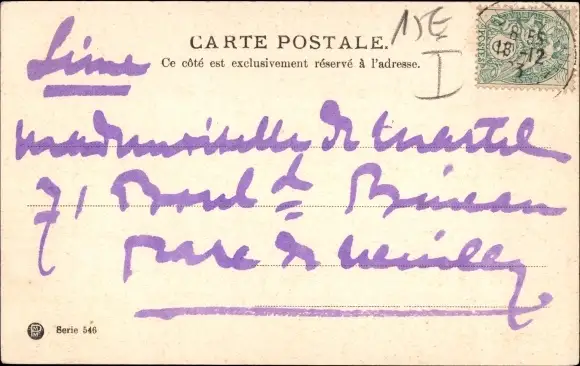 15E
I
CARTE POSTALE.
Ce côté est exclusivement réservé à l'adresse.
Seine
Mademoiselle de Martel
71 Boul d Bineau
parc de Neuilly
Serie 546